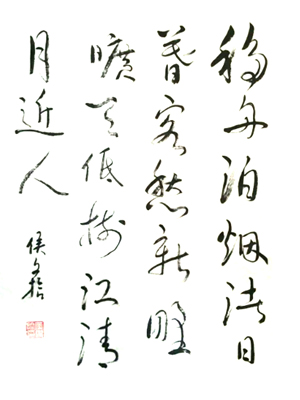 移舟泊烟渚日
暮客愁新野
曠天低樹江清
月近人
侯